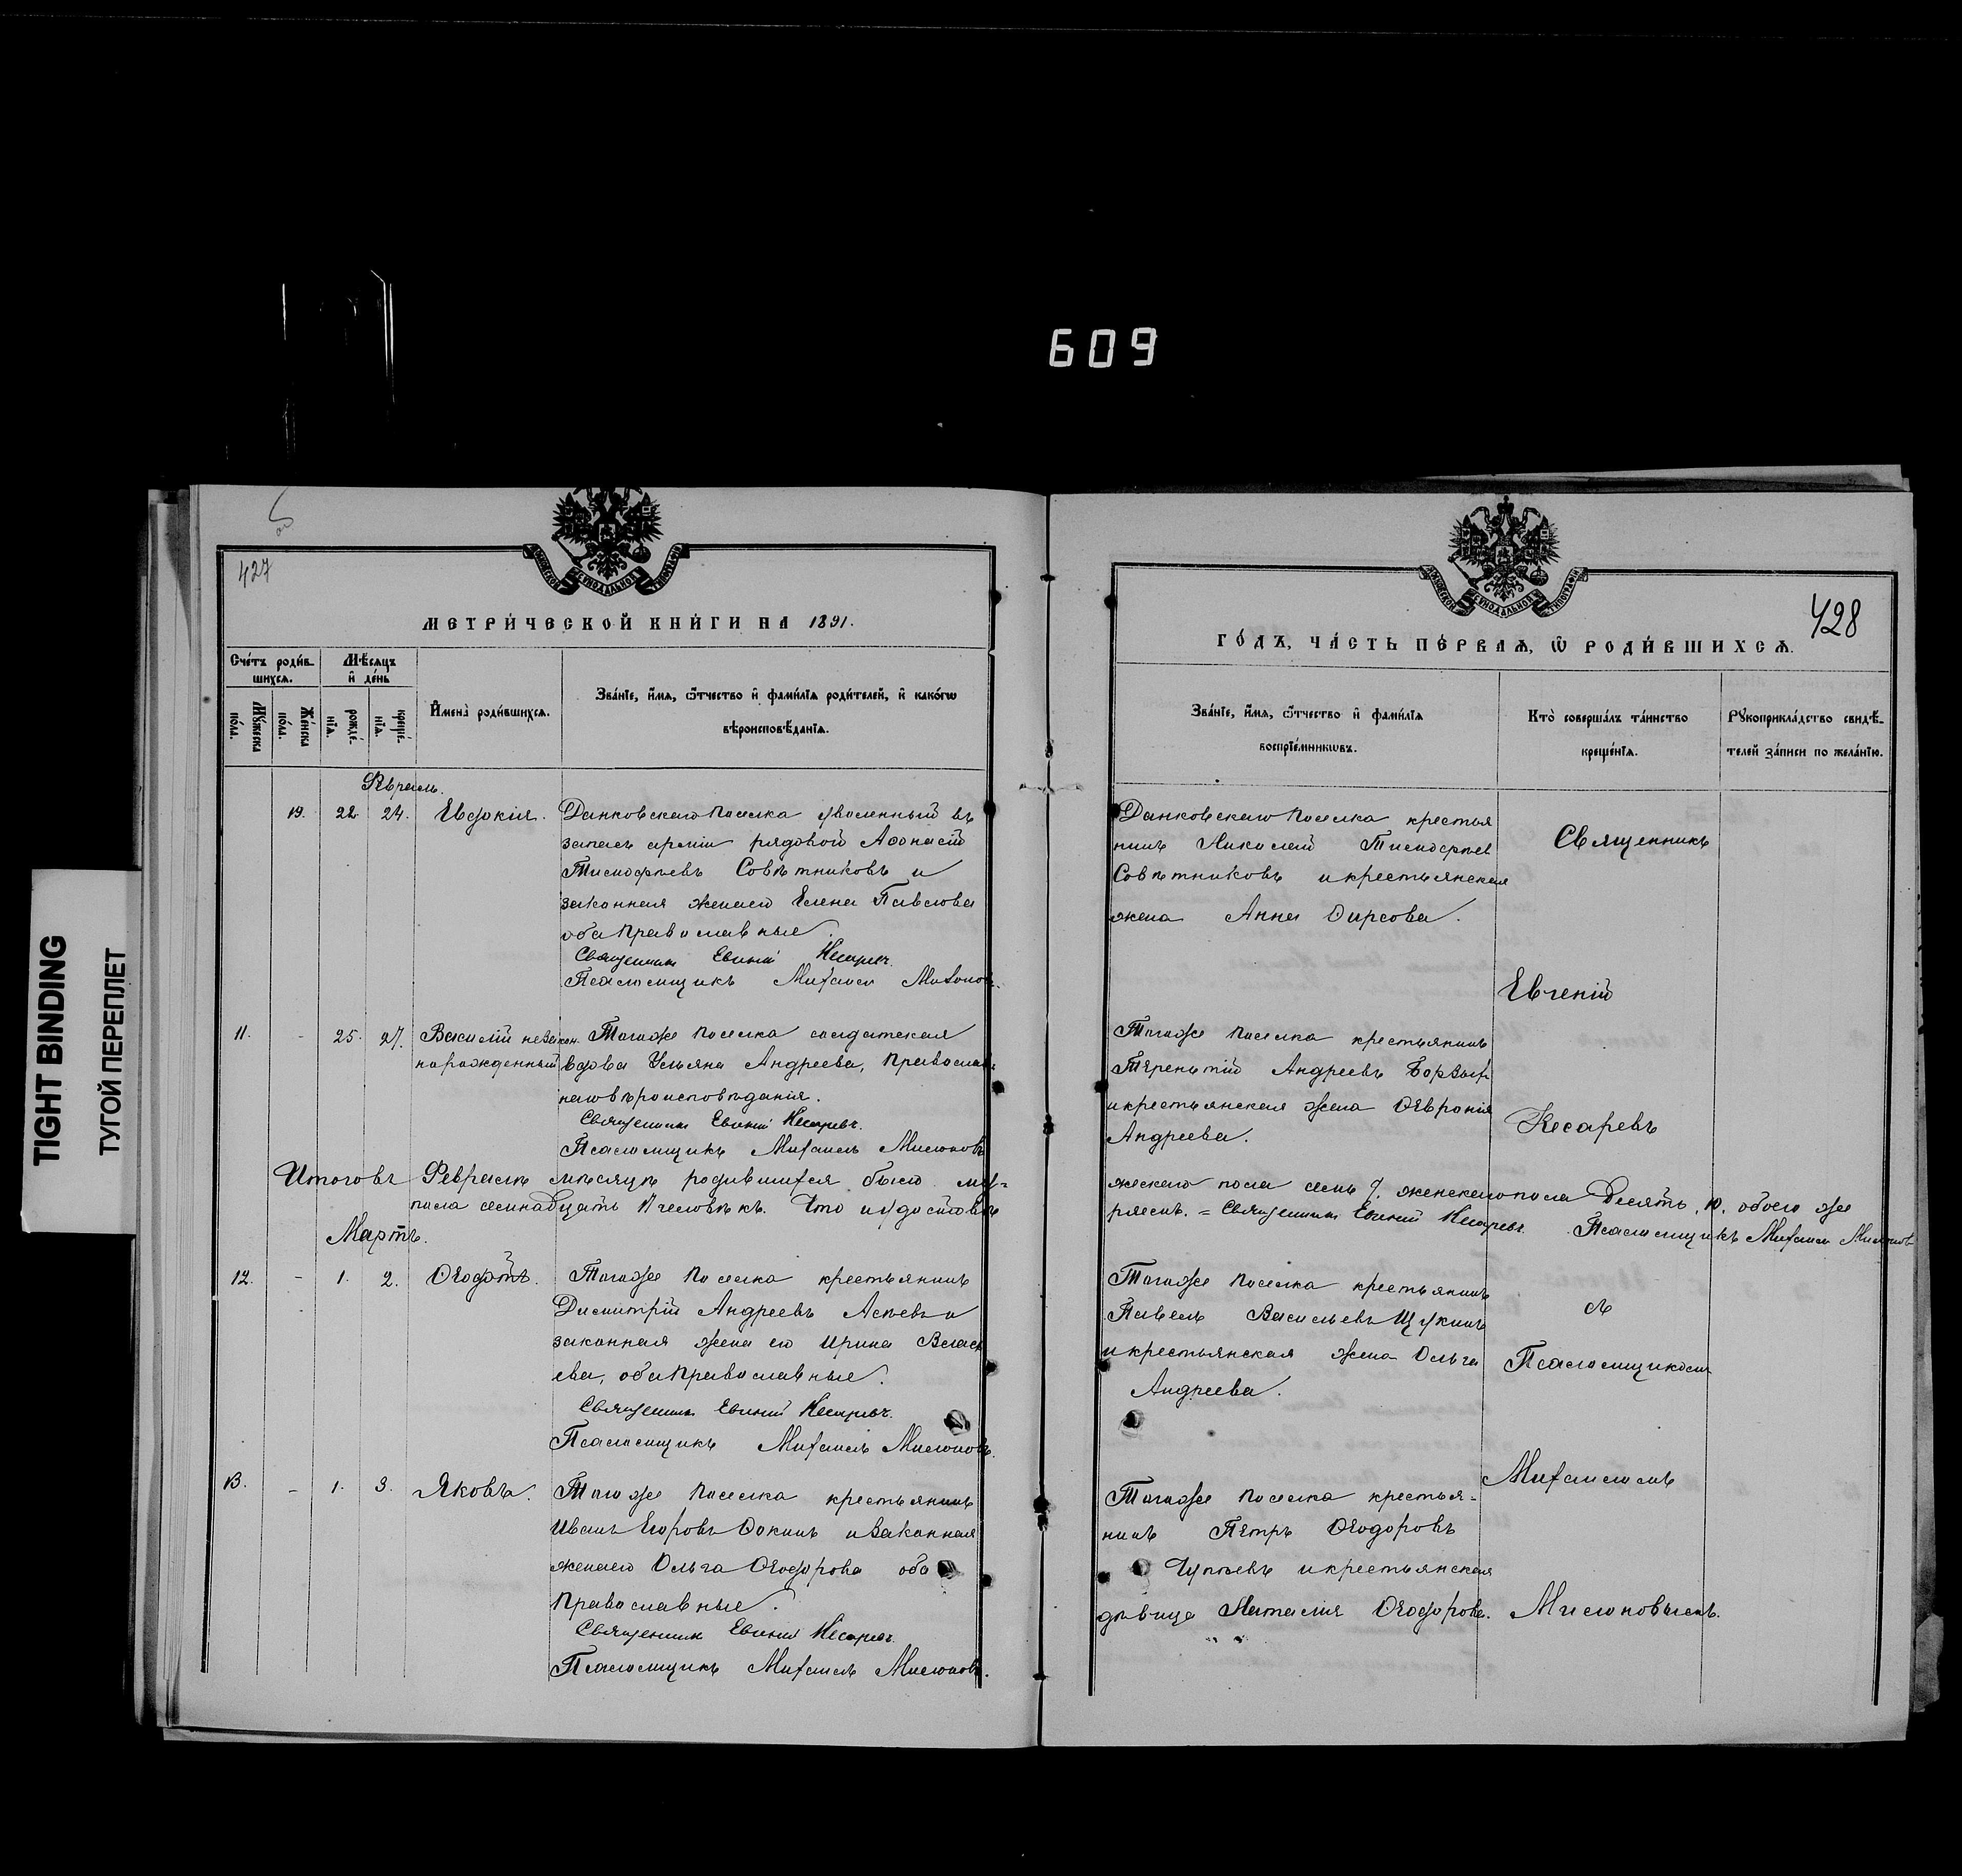 609
TIGHT BINDING
ТУГОЙ ПЕРЕПЛЕТ
427
МЕТРИ́ЧЕСКОЙ КНИ́ГИ НА 1891.
Сче́тъ роди́в-
шихсѧ.
Мѣ́сѧцъ
и҆ де́нь
Мꙋ́жеска
по́ла.
Же́нска
по́ла.
рожде́-
нїѧ.
креще́-
нїѧ.
И҆мена̀ роди́вшихсѧ.
Зва́нїе, и҆́мѧ, ѻ҆́тчество и҆ фами́лїѧ роди́телей, и҆ како́гѡ
вѣроисповѣ́данїѧ.
Февраль.
19. 22. 24. Евдокія. Данковскаго поселка уволенный въ
запасъ арміи рядовой Аѳонасій
Тимофѣевъ Совѣтниковъ и
законная жена его Елена Павлова
оба православные.
Священникъ Евгеній Кесаревъ.
Псаломщикъ Михаилъ
11. - 25. 27. Василій незакон. Тогоже поселка солдатская
норожденный вдова Ульяна Андреева, православ-
наго вѣроисповѣданія.
Священникъ Евгеній Кесаревъ.
Псаломщикъ Михаилъ Милоновъ
Итого въ Февралѣ мѣсяцѣ родившихся было муж-
пола семнадцать человѣкъ. Что и удостовѣ
Мартъ.
12. - 1. 2. Ѳеодотъ. Тогоже поселка крестьянинъ
Димитрій Андреевъ и
законная жена его Ирина Власі
ева, оба православные.
Священникъ Евгеній Кесаревъ.
Псаломщикъ Михаилъ Милоновъ.
13. - 1. 3. Яковъ. Тогоже поселка крестьянинъ
Иванъ Егоровъ Ѳокинъ и законная
жена его Ольга Ѳеодорова оба
православные.
Священникъ Евгеній Кесаревъ.
Псаломщикъ Михаилъ Милоновъ.
428
ГО́ДЪ, ЧА́СТЬ ПЕ́РВАѦ, Ѽ РОДИ́ВШИХСѦ.
Зва́нїе, и҆́мѧ, ѻ҆́тчество и҆ фами́лїѧ
воспрїе́мникѡвъ.
Кто̀ соверша́лъ та́инство
креще́нїѧ.
Рꙋкоприкла́дство свидѣ́-
телей за́писи по жела́нїю.
Данковскаго поселка крестья
нинъ Николай Тимофѣев
Совѣтниковъ и крестьянская
жена Анна Фирсова.
Священникъ
Евгеній
Тогоже поселка крестьянинъ
Терентій Андреевъ
и крестьянская жена Ѳевронія
Андреева.
Кесаревъ
жескаго пола семь 7. женскаго пола десять, 10. обоего же
ряемъ. = Священникъ Евгеній Кесаревъ. Псаломщикъ Михаилъ Милоновъ
Тогоже поселка крестьянинъ
Павелъ Васильевъ Щукинъ
и крестьянская жена Ольга
Андреева.
съ
Псаломщикомъ
Михаиломъ
Тогоже поселка крестья-
нинъ Петръ Ѳеодоровъ
и крестьянская
дѣвица Наталія Ѳеодорова. Милоновымъ.